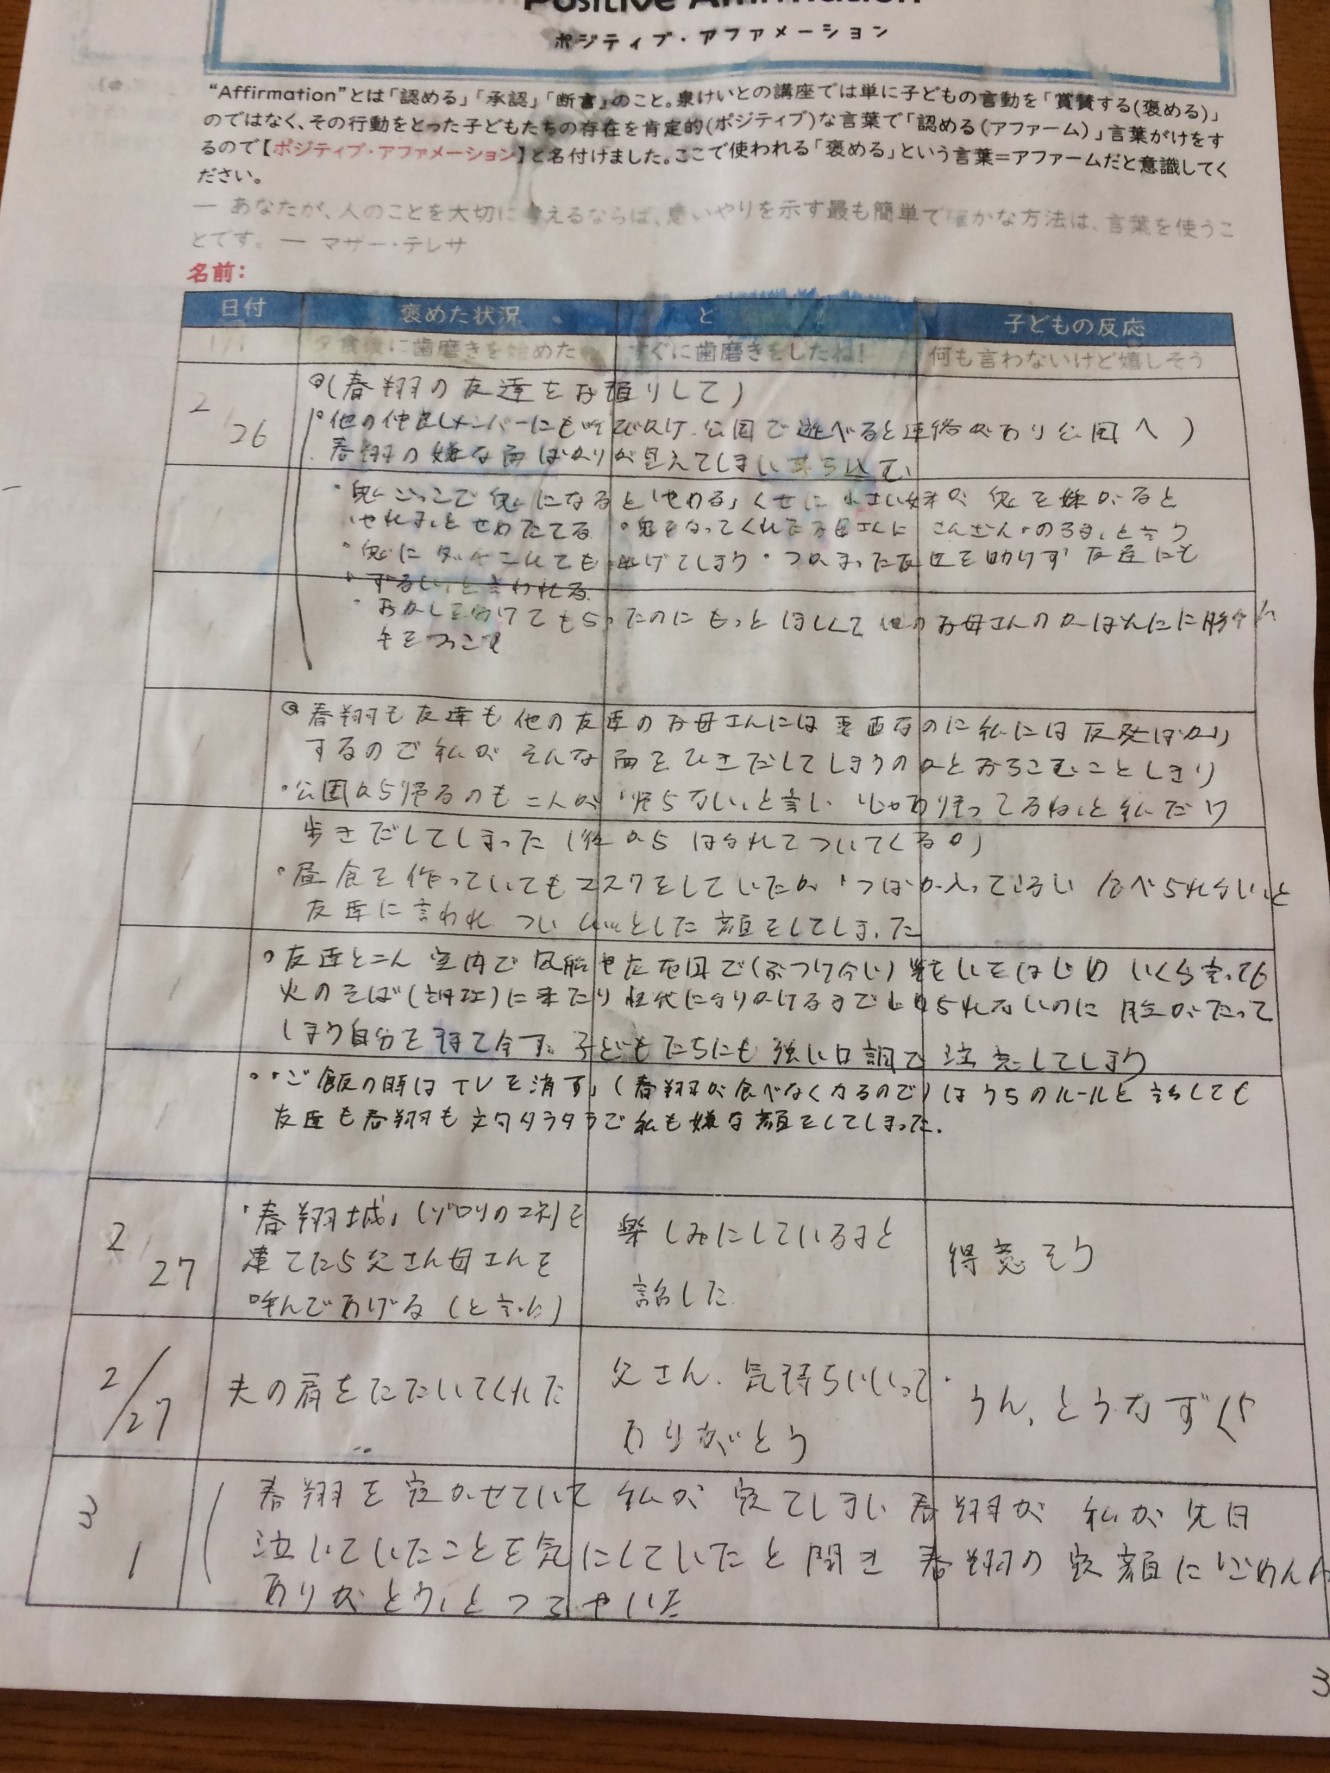 Positive Affirmation
ポジティブ・アファメーション
"Affirmation"とは「認める」「承認」「断言」のこと。泉けいとの講座では単に子どもの言動を「賞賛する(褒める)」
のではなく、その行動をとった子どもたちの存在を肯定的(ポジティブ)な言葉で「認める(アファーム)」言葉がけをす
るので【ポジティブ・アファメーション】と名付けました。ここで使われる「褒める」という言葉=アファームだと意識してく
ださい。
— あなたが、人のことを大切に考えるならば、思いやりを示す最も簡単で確かな方法は、言葉を使うこ
とです。— マザー・テレサ
名前:
日付 褒めた状況 と 子どもの反応
1/1 夕食後に歯磨きを始めた すぐに歯磨きをしたね! 何も言わないけど嬉しそう
2/26 (春翔の友達をお預りして)
他の仲良しメンバーにも呼びかけ 公園で遊べると連絡があり公園へ)
春翔の嫌な面ばかりが見えてしまい落ち込む
・鬼ごっこで鬼になると「やめる」くせに小さい妹が鬼を嫌がると
「やれよ」とせめたてる ・鬼をやってくれたお母さんに さんざん「のろま」と言う
・鬼に タッチされても逃げてしまう・つかまった友達を助けず 友達にも
「ずるい」と言われる
・おかしを分けてもらったのにもっとほしくて 他のお母さんのかばんに勝手に
手をつっこむ
春翔も友達も他の友達のお母さんには素直なのに私には反発ばかり
するので私が そんな面をひきだしてしまうのかとおちこむことしきり
・公園から帰るのも二人が「帰らない」と言い「じゃあ先行ってるね」と私だけ
歩きだしてしまった(後から はなれてついてくる)
・昼食を作っていてもマスクをしていたが「つばが入ってるい 食べられない」と
友達に言われ つい ムッとした顔をしてしまった
・友達と二人 室内で風船や (ぶつけ合い) をはじめ いくら言っても
火のそば(調理)に来たり になりかけるまでしても やめられないのに 腹がたって
しまう自分を持て余す。子どもたちにも強い口調で 注意してしまう
・「ご飯の時はTVを消す」(春翔が食べなくなるので)はうちのルールと話しても
友達も春翔も文句タラタラで私も嫌な顔をしてしまった。
2/27 「春翔城」(ゾロリのマネ)を 楽しみにしているよと 得意そう
建てたら父さん母さんを 話した
呼んであげる(と言った)
2/27 夫の肩をたたいてくれた 父さん、気持ちいいって うん、とうなずく
ありがとう
3/1 春翔を寝かせていて 私が寝てしまい 春翔が 私が先日
泣いていたことを気にしていたと聞き 春翔の寝顔に「ごめんね
ありがとう」とつぶやいた
3